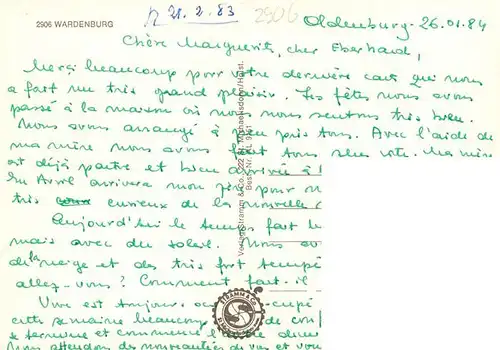 2906 WARDENBURG
21.2.83
2906
Oldenburg - 26.01.84
Chère Marguerite, cher Eberhard,
Merci beaucoup pour votre dernière carte qui nous
a fait un très grand plaisir. Les fêtes nous avons
passé à la maison où nous nous sentons très bien.
Nous avons arrangé à peu près tous. Avec l'aide de
ma mère nous avons fait tous plus vite. Ma mère
est déjà partie et bien arrivée à
En Avril arrivera mon père pour
très curieux de la nouvelle
Aujourd'hui le temps fait
mais avec du soleil. Nous
de la neige et des très fort
allez-vous? Comment fait-il
Uwe est toujours
cette semaine beaucoup de
se termine et commence
Nous attendons des nouveautés de vous et
Verlag Stramm & Co., 222 St. Michaelisdonn/Holst.
Best.-Nr. WL
STRAMM & CO.